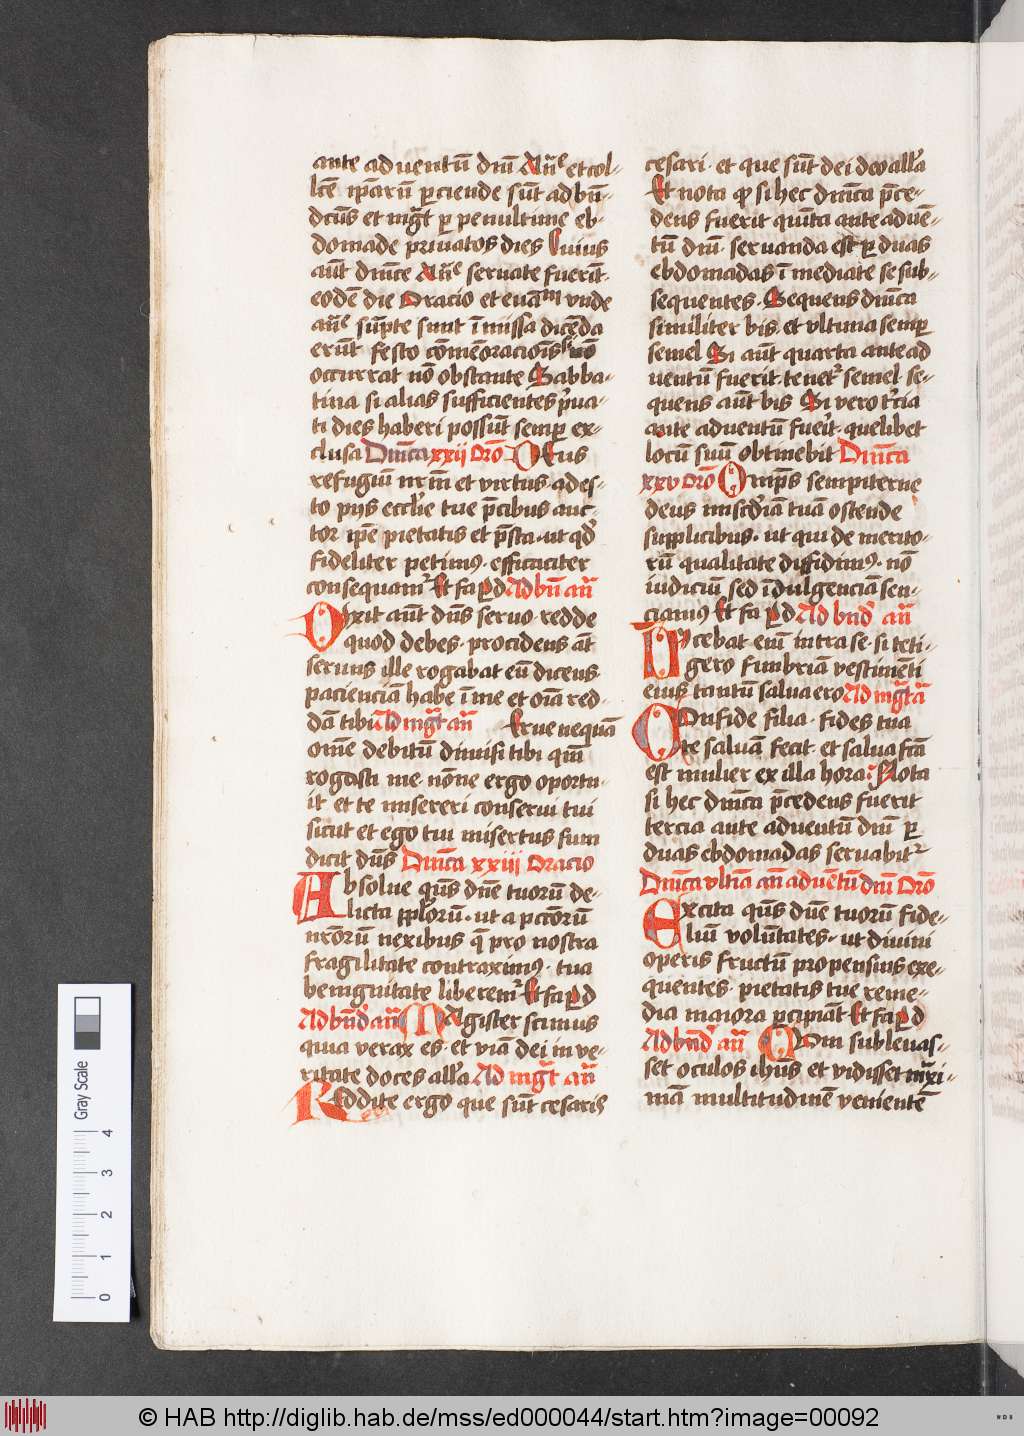 ante aduentū dnī Añe et col-
lc̄e ip̄arū ꝑciende sūt ad bn̄-
dcūs et mg̅t ꝑ penultime eb-
domade priuatos dies Cuius
aūt dnīce Añe seruate fuerīt
eodē die Oracio et euāᵐ vnde
añe sūpte sunt ī missa dicēda
erūt festo cōmēoracionīs nō
occurrat nō obstante Sabba-
tina si alias sufficientes pͥua-
ti dies haberi possūt semꝑ ex-
clusa Dnīca xxii Orō Deus
refugiū nrm̄ et virtus ades-
to pijs eccl̄ie tue p̄cibus auc-
tor ip̄e pietatis et p̄sta. ut qd̓
fideliter petimꝯ efficaciter
consequam̄ʳ Et fa ꝑ d Ad bn̄ añ
Obxit aūt dn̄s seruo redde
quod debes. procidens āt
seruus ille rogabat eū dicens
pacienciā habe ī me et oīa red-
dā tibi Ad mg̅t añ Serue nequā
om̄e debitū dimisi tibi qm̄
rogasti me. nōne ergo oportu-
it et te misereri conserui tui
sicut et ego tui misertus sum
dicit dn̄s Dnīca xxiii Oracio
Absolue qs̄ dn̄e tuorū de-
licta pplōrū. ut a pctōrū
nrōrū nexibus q̄ pro nostra
fragilitate contraximꝯ. tua
benignitate liberem̄ʳ Et fa ꝑ d
Ad bnd̄ añ Magister scimus
quia verax es. et viā dei in ve-
ritate doces all̄a Ad mg̅t añ
Reddite ergo que sūt cesaris
cesari. et que sūt dei deo all̄a
Et nota ꝙ si hec dnīca p̄ce-
dens fuerit quīta ante aduē-
tū dnī. seruanda est ꝑ duas
ebdomadas ī mediate se sub-
sequentes. Sequens dnīca
similiter bis. et vltima semꝑ
semel Si aūt quarta ante ad
uentū fuerit. tenetʳ semel se-
quens aūt bis Si vero tͬcia
ante aduentū fueͥt. quelibet
locū suū obtinebit Dnīca
xxv Orō Omps̄ sempiterne
deus misc̄diā tuā ostende
supplicibus. ut qui de merito-
rū qualitate diffidimꝯ. nō
iudiciū sed īdulgenciā sen-
ciamꝯ Et fa ꝑ d Ad bnd̄ añ
Dicebat enī intra se. si teti-
gero fimbriā vestimēti
eius tantū salua ero Ad mg̅t añ
Confide filia. fides tua
te saluā fecit. et salua fcā
est mulier ex illa hora: Nota
si hec dnīca p̄cedens fuerit
tercia ante aduentū dnī ꝑ
duas ebdomadas seruabitʳ
Dnīca vltīa añ aduētū dnī Orō
Excita qs̄ dn̄e tuorū fide-
liū volūtates. ut diuini
operis fructū propensius exe-
quentes. pietatis tue reme-
dia maiora ꝑcipiāt Et fa ꝑ d
Ad bnd̄ añ Cum subleuas-
set oculos ihūs et vidisset maxi-
mā multitudinē venientē
Gray Scale
0 1 2 3 4
© HAB http://diglib.hab.de/mss/ed000044/start.htm?image=00092